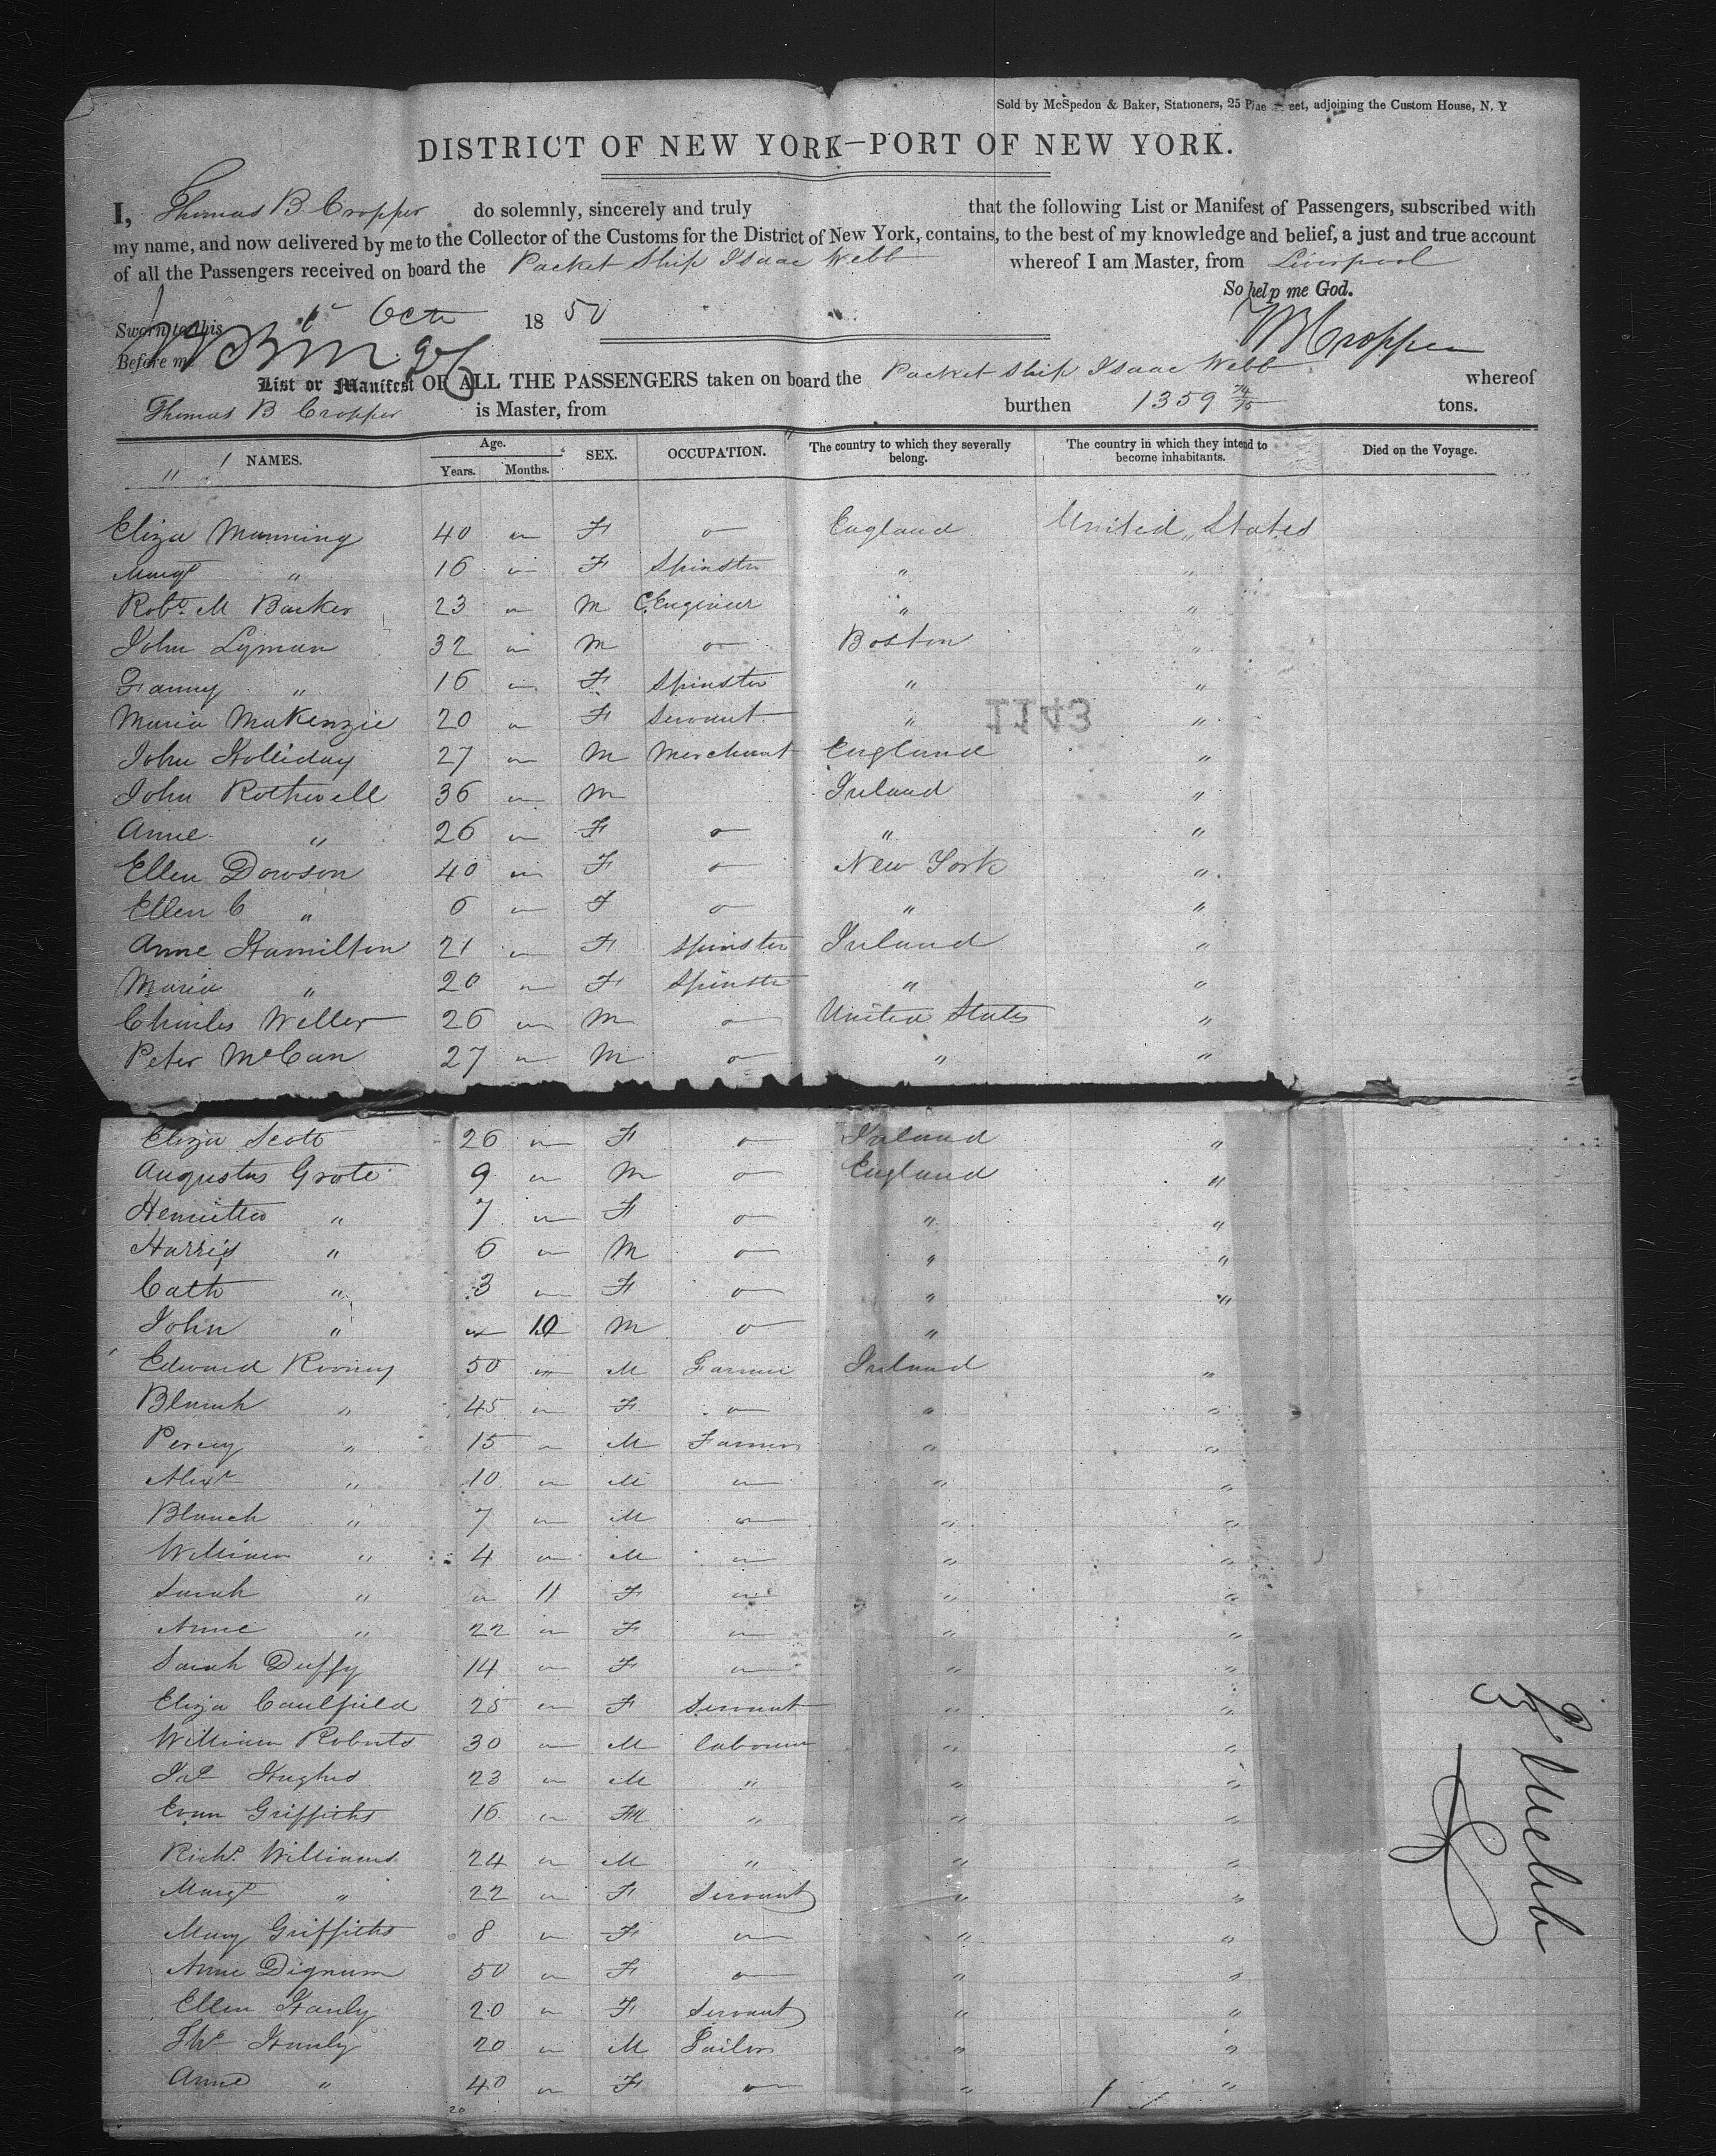 Sold by McSpedon & Baker, Stationers, 25 Pine eet, adjoining the Custom House, N. Y
DISTRICT OF NEW YORK—PORT OF NEW YORK.
I, Thomas B Cropper do solemnly, sincerely and truly that the following List or Manifest of Passengers, subscribed with
my name, and now delivered by me to the Collector of the Customs for the District of New York, contains, to the best of my knowledge and belief, a just and true account
of all the Passengers received on board the Packet Ship Isaac Webb whereof I am Master, from Liverpool
So help me God.
Sworn to this 1st Oct 1850
TB Cropper
Before m
List or Manifest OF ALL THE PASSENGERS taken on board the Packet Ship Isaac Webb whereof
Thomas B Cropper is Master, from burthen 1359 74/95 tons.
NAMES. Age. Years. Months. SEX. OCCUPATION. The country to which they severally belong. The country in which they intend to become inhabitants. Died on the Voyage.
Eliza Manning 40 F England United States
Margt " 16 F Spinster " "
Robt. M Barker 23 M C. Engineer " "
John Lyman 32 M Boston "
Fanny " 16 F Spinster " "
Maria MaKenzie 20 F Servant " "
1143
John Holliday 27 M Merchant England "
John Rothwell 36 M Ireland "
Anne " 26 F " "
Ellen Dowson 40 F New York "
Ellen C " 6 F " "
Anne Hamilton 21 F Spinster Ireland "
Maria " 20 F Spinster " "
Charles Weller 26 M United States "
Peter McCan 27 M " "
Eliza Scott 26 F Ireland "
Augustus Grote 9 M England "
Henrietta " 7 F " "
Harris " 6 M " "
Cath " 3 F " "
John " 10 M " "
Edward Rooney 50 M Farmer Ireland "
Blanch " 45 F " "
Percy " 15 M Farmer " "
Alexr " 10 M " "
Blanch " 7 M " "
William " 4 M " "
Sarah " 11 F " "
Anne " 22 F " "
Sarah Duffy 14 F " "
Eliza Caulfield 25 F Servant " "
William Roberts 30 M labourer " "
Hughes 23 M " " "
Evan Griffiths 16 M " " "
Richd. Williams 24 M " " "
Margt " 22 F Servant " "
Mary Griffiths 8 F " "
Anne Dignum 50 F " "
Ellen Hanly 20 F Servant " "
Thos Hanly 20 M Sailor " "
Anne " 40 F " "
20